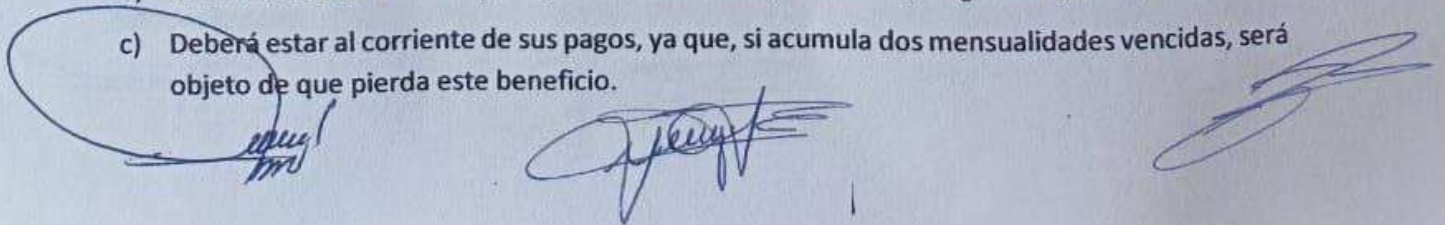 c) Deberá estar al corriente de sus pagos, ya que, si acumula dos mensualidades vencidas, será
objeto de que pierda este beneficio.